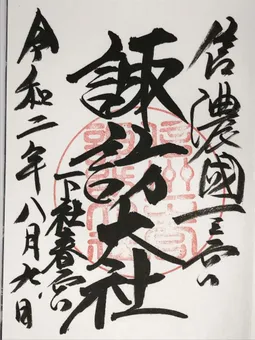 信濃國一之宮
諏訪大社
下社春宮
令和二年八月九日